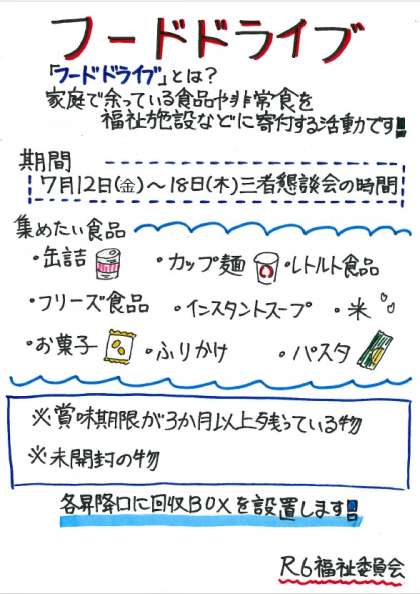 フードドライブ
「フードドライブ」とは？
家庭で余っている食品や非常食を
福祉施設などに寄付する活動です!!
期間
7月12日(金)～18日(木)三者懇談会の時間
集めたい食品
・缶詰 ・カップ麺 ・レトルト食品
・フリーズ食品 ・インスタントスープ ・米
・お菓子 ・ふりかけ ・パスタ
※賞味期限が3か月以上残っている物
※未開封の物
各昇降口に回収BOXを設置します!!
R6福祉委員会